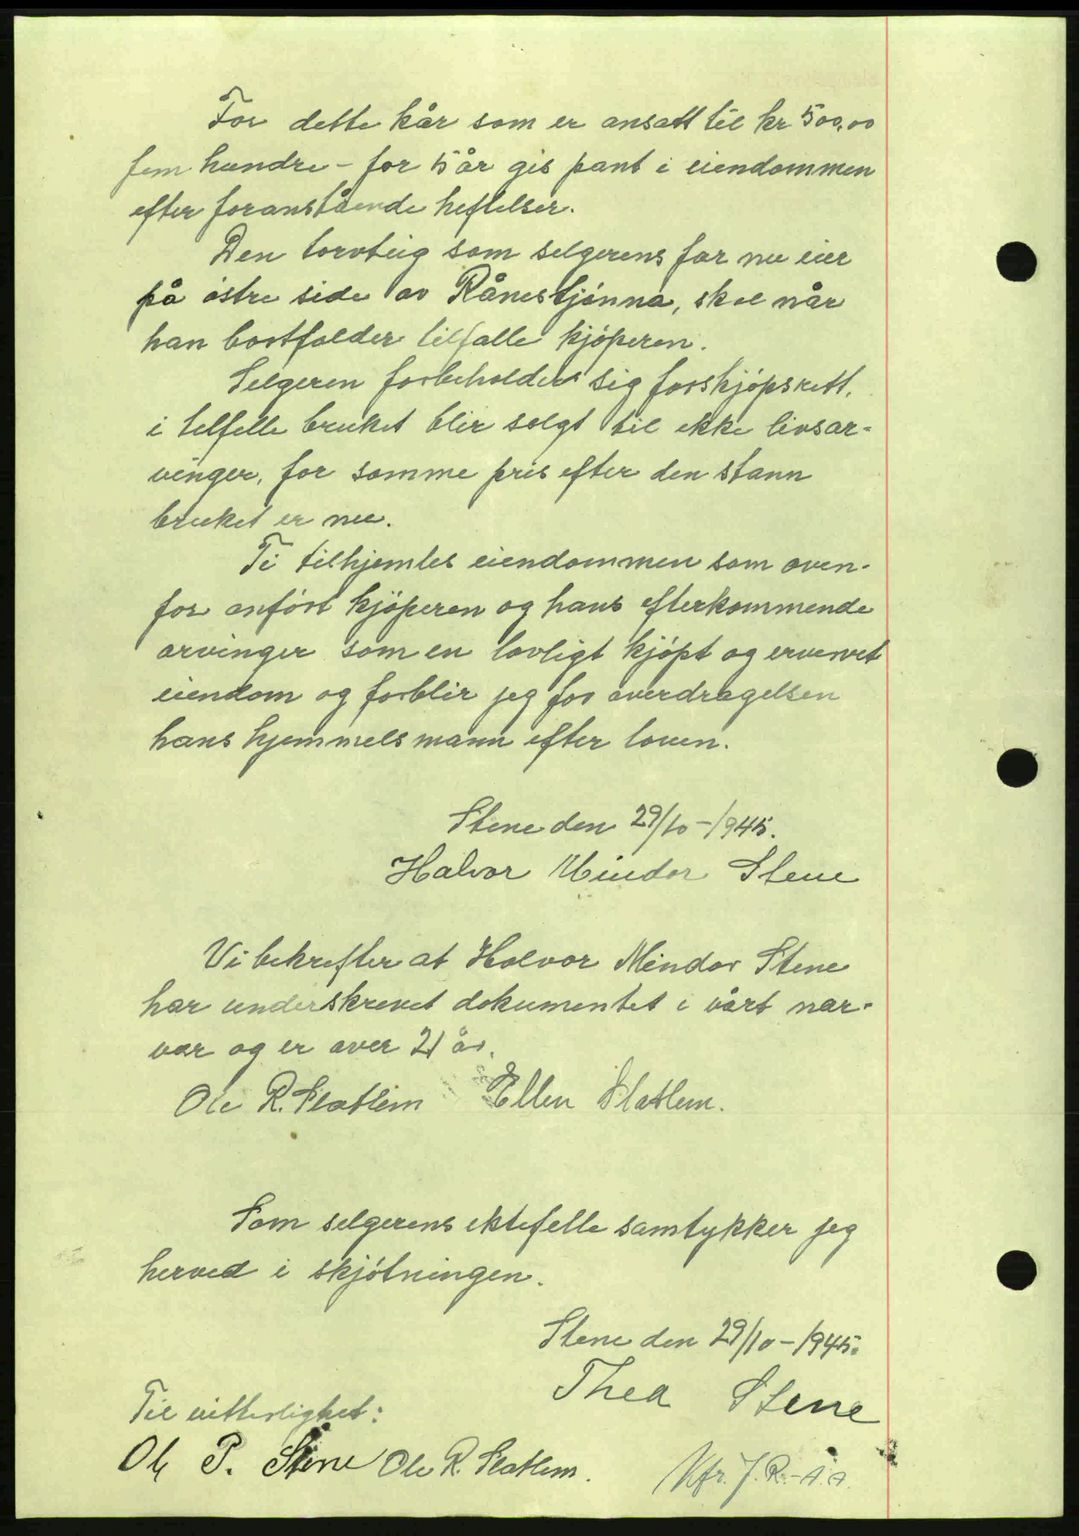 For dette kår som er ansatt til kr 500,00
fem hundre - for 5 år gis pant i eiendommen
efter foranstående heftelser.
Den torvteig som selgerens far nu eier
på østre side av Rånestjønna, skal når
han bortfalder tilfalle kjøperen.
Selgeren forbeholder sig forskjøpsrett,
i telfelle bruket blir solgt til ikke livsar-
vinger, for samme pris efter den stann
bruket er nu.
Ti tilhjemles eiendommen som oven-
for anført kjøperen og hans efterkommende
arvinger som en lovligt kjøpt og ervervet
eiendom og forblir jeg for overdragelsen
hans hjemmelsmann efter loven.
Stene den 29/10-1945.
Halvor Mindor Stene
Vi bekrefter at Halvor Mindor Stene
har underskrevet dokumentet i vårt nær-
vær og er over 21 år.
Ole R. Slatlem Ellen Slatlem.
Som selgerens ektefelle samtykker jeg
herved i skjøtningen.
Stene den 29/10-1945.
Thea Stene
Til vitterlighet:
Ole P. Stene Ole R. Slatlem.
Kfr. J.R.-A.A.